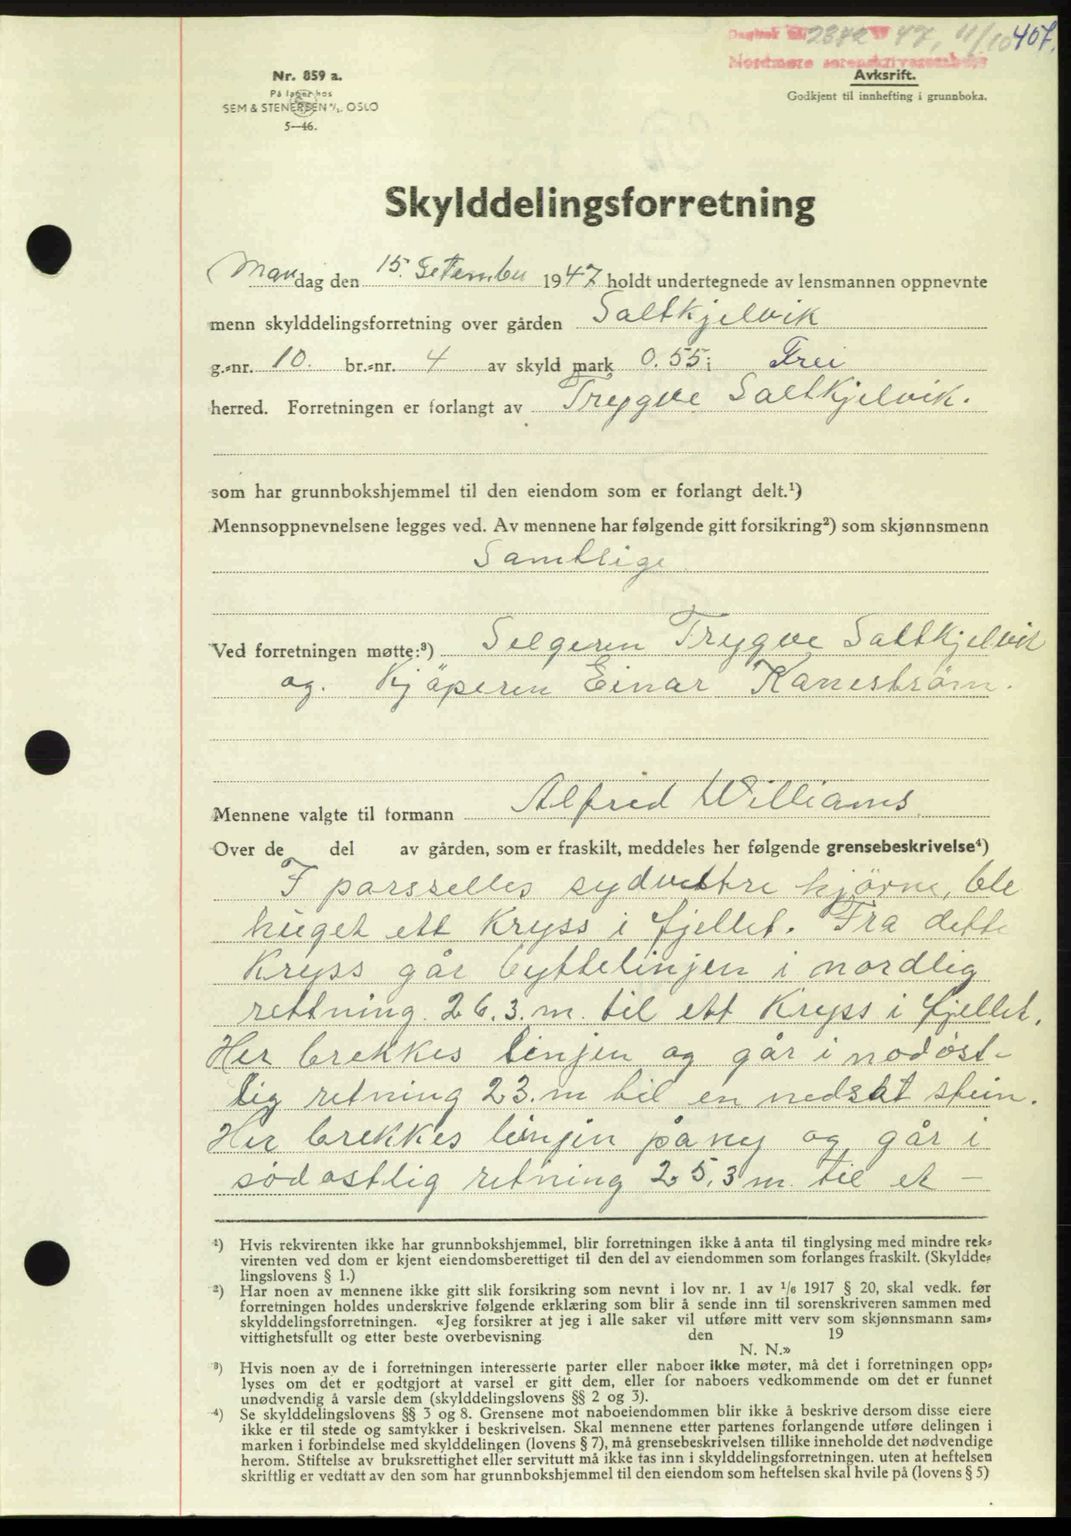 Dagbok 2342 47, 11/10 407.
Nordmøre sorenskriverembete
Nr. 859 a.
På lager hos
SEM & STENERSEN A/S. OSLO
5—46.
Avskrift.
Godkjent til innhefting i grunnboka.
Skylddelingsforretning
Mandag den 15. Setember 1947 holdt undertegnede av lensmannen oppnevnte
menn skylddelingsforretning over gården Saltkjelvik
g.-nr. 10. br.-nr. 4 av skyld mark 0.55 i Frei
herred. Forretningen er forlangt av Trygve Saltkjelvik.
som har grunnbokshjemmel til den eiendom som er forlangt delt.¹)
Mennsoppnevnelsene legges ved. Av mennene har følgende gitt forsikring²) som skjønnsmenn
Samtlige
Ved forretningen møtte:³) Selgeren Trygve Saltkjelvik
og. Kjöperen Einar Kaneström.
Mennene valgte til formann Alfred Williams
Over de del av gården, som er fraskilt, meddeles her følgende grensebeskrivelse⁴)
I parsselles sydvettre hjörne, ble
huget ett Kryss i fjellet. Fra dette
Kryss går byttelinjen i nordlig
rettning 26.3. m. til ett Kryss i fjellet.
Her brekkes linjen og går i nodöst-
lig retning 23. m til en nedsat stein.
Her brekkes linjen på ny og går i
södostlig retning 25,3 m. til et —
¹) Hvis rekvirenten ikke har grunnbokshjemmel, blir forretningen ikke å anta til tinglysing med mindre rek-
virenten ved dom er kjent eiendomsberettiget til den del av eiendommen som forlanges fraskilt. (Skyldde-
lingslovens § 1.)
²) Har noen av mennene ikke gitt slik forsikring som nevnt i lov nr. 1 av 1/6 1917 § 20, skal vedk. før
forretningen holdes underskrive følgende erklæring som blir å sende inn til sorenskriveren sammen med
skylddelingsforretningen. «Jeg forsikrer at jeg i alle saker vil utføre mitt verv som skjønnsmann sam-
vittighetsfullt og etter beste overbevisning den 19
N. N.»
³) Hvis noen av de i forretningen interesserte parter eller naboer ikke møter, må det i forretningen opp-
lyses om det er godtgjort at varsel er gitt dem, eller for naboers vedkommende om det er funnet
unødvendig å varsle dem (skylddelingslovens §§ 2 og 3).
⁴) Se skylddelingslovens §§ 3 og 8. Grensene mot naboeiendommen blir ikke å beskrive dersom disse eiere
ikke er til stede og samtykker i beskrivelsen. Skal mennene etter partenes forlangende utføre delingen i
marken i forbindelse med skylddelingen (lovens § 7), må grensebeskrivelsen tillike inneholde det nødvendige
herom. Stiftelse av bruksrettighet eller servitutt må ikke tas inn i skylddelingsforretningen. uten at heftelsen
skriftlig er vedtatt av den som har grunnbokshjemmel til den eiendom som heftelsen skal hvile på (lovens § 5)